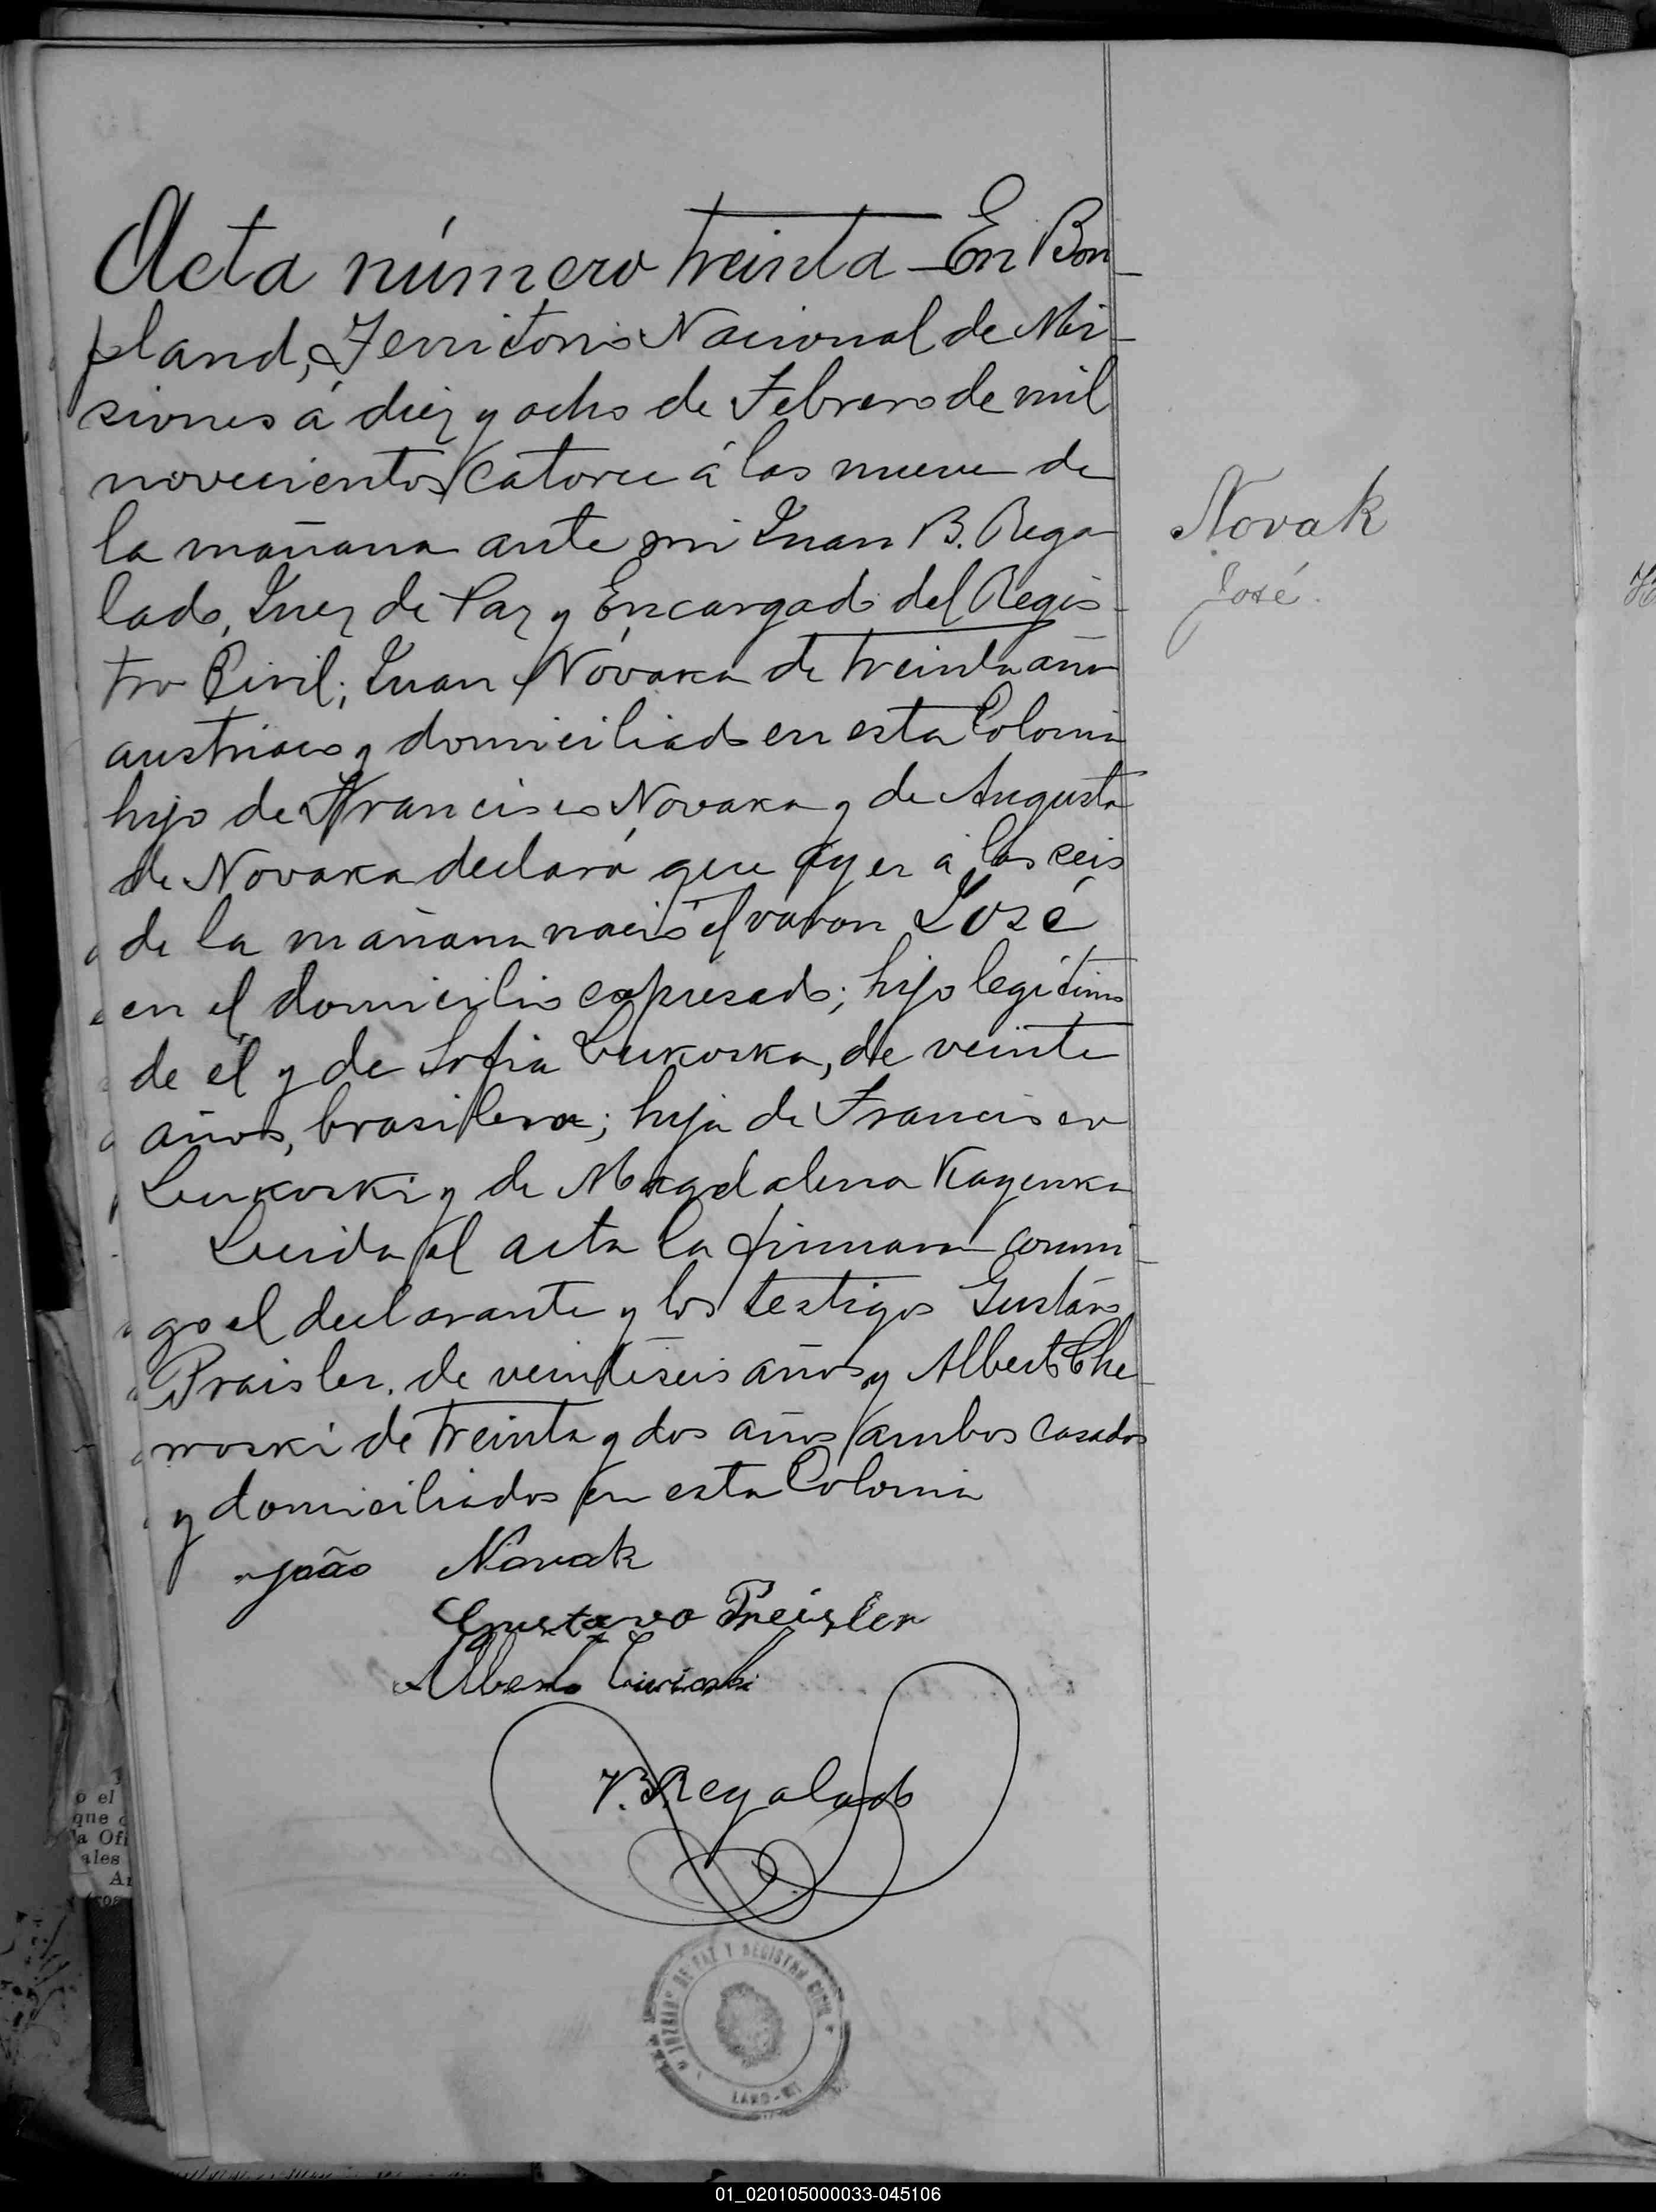 Acta número treinta - En Bon-
pland, Territorio Nacional de Mi-
siones á diez y ocho de Febrero de mil
novecientos catorce á las nueve de
la mañana ante mi Juan B. Rega
lado, Juez de Paz y Encargado del Regis-
tro Civil; Juan Novaka de treinta años
austriaco y domiciliado en esta Colonia
hijo de Francisco Novaka y de Augusta
de Novaka declaró que ayer á las seis
de la mañana nació el varon José
en el domicilio expresado; hijo legítimo
de él y de Sofia Lukoska, de veinte
años, brasilera; hija de Francisco
Lukoski y de Magdalena Kayenka
Leida el acta la firmaron conmi-
go el declarante y los testigos Gustavo
Praisler. de veintiseis años y Alberto Che-
rroski de treinta y dos años ambos casados
y domiciliados en esta Colonia
João Novak
Gustavo Preisler
Alberto
J.B. Regalado
JUZGADO DE PAZ Y REGISTRO CIVIL
LAND-MI
Novak
José.
o el
que
la Ofi
ales
01_020105000033-045106